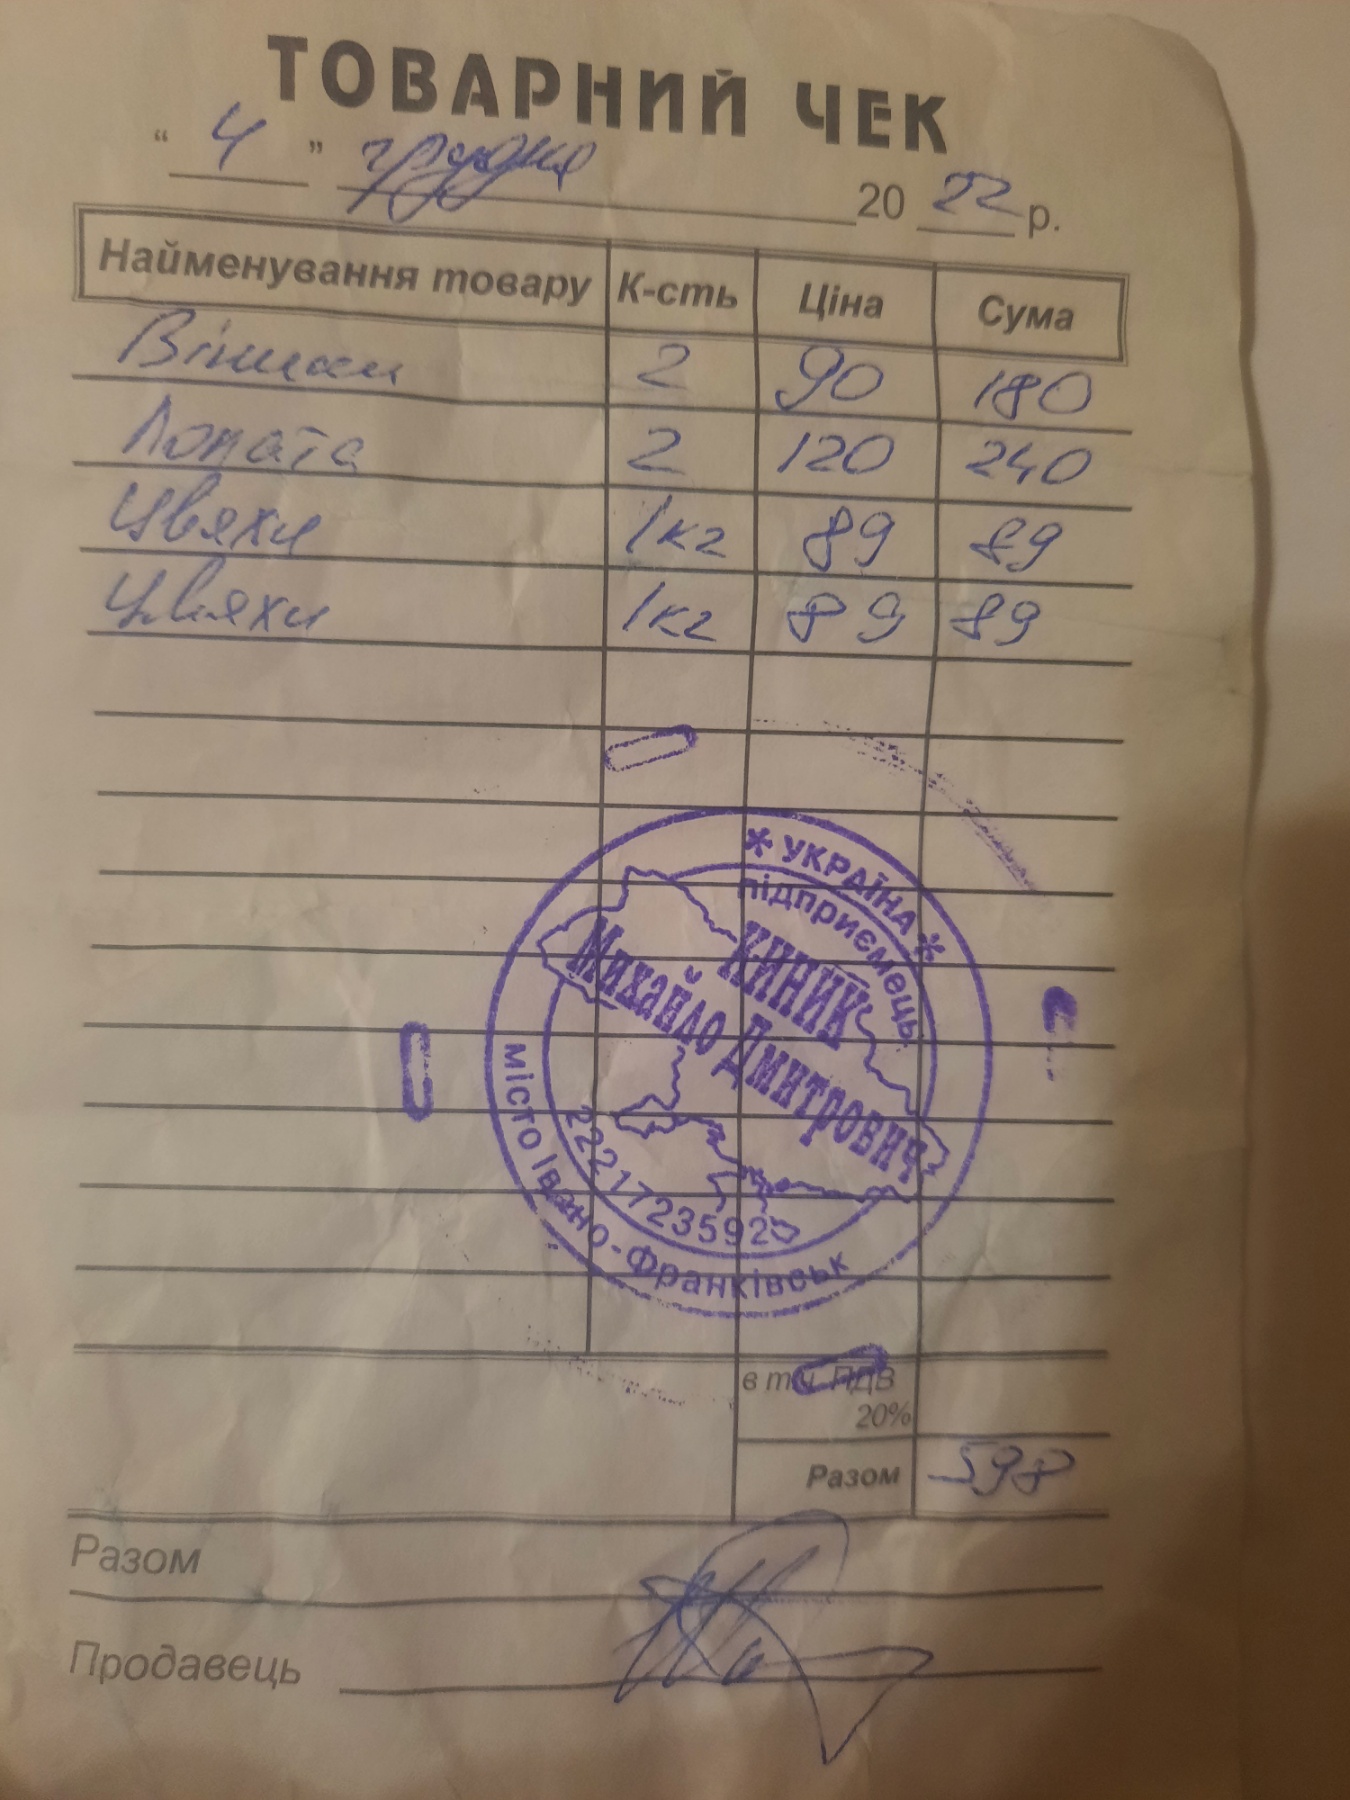 ТОВАРНИЙ ЧЕК
" 4 " грудня 20 22 р.
Найменування товару К-сть Ціна Сума
2 90 180
Лопата 2 120 240
Цвяхи 1кг 89 89
Цвяхи 1кг 89 89
* УКРАЇНА *
підприємець
КИНИК
Михайло Дмитрович
2221723592
місто Івано-Франківськ
в т.ч. ПДВ
20%
Разом 598
Разом
Продавець